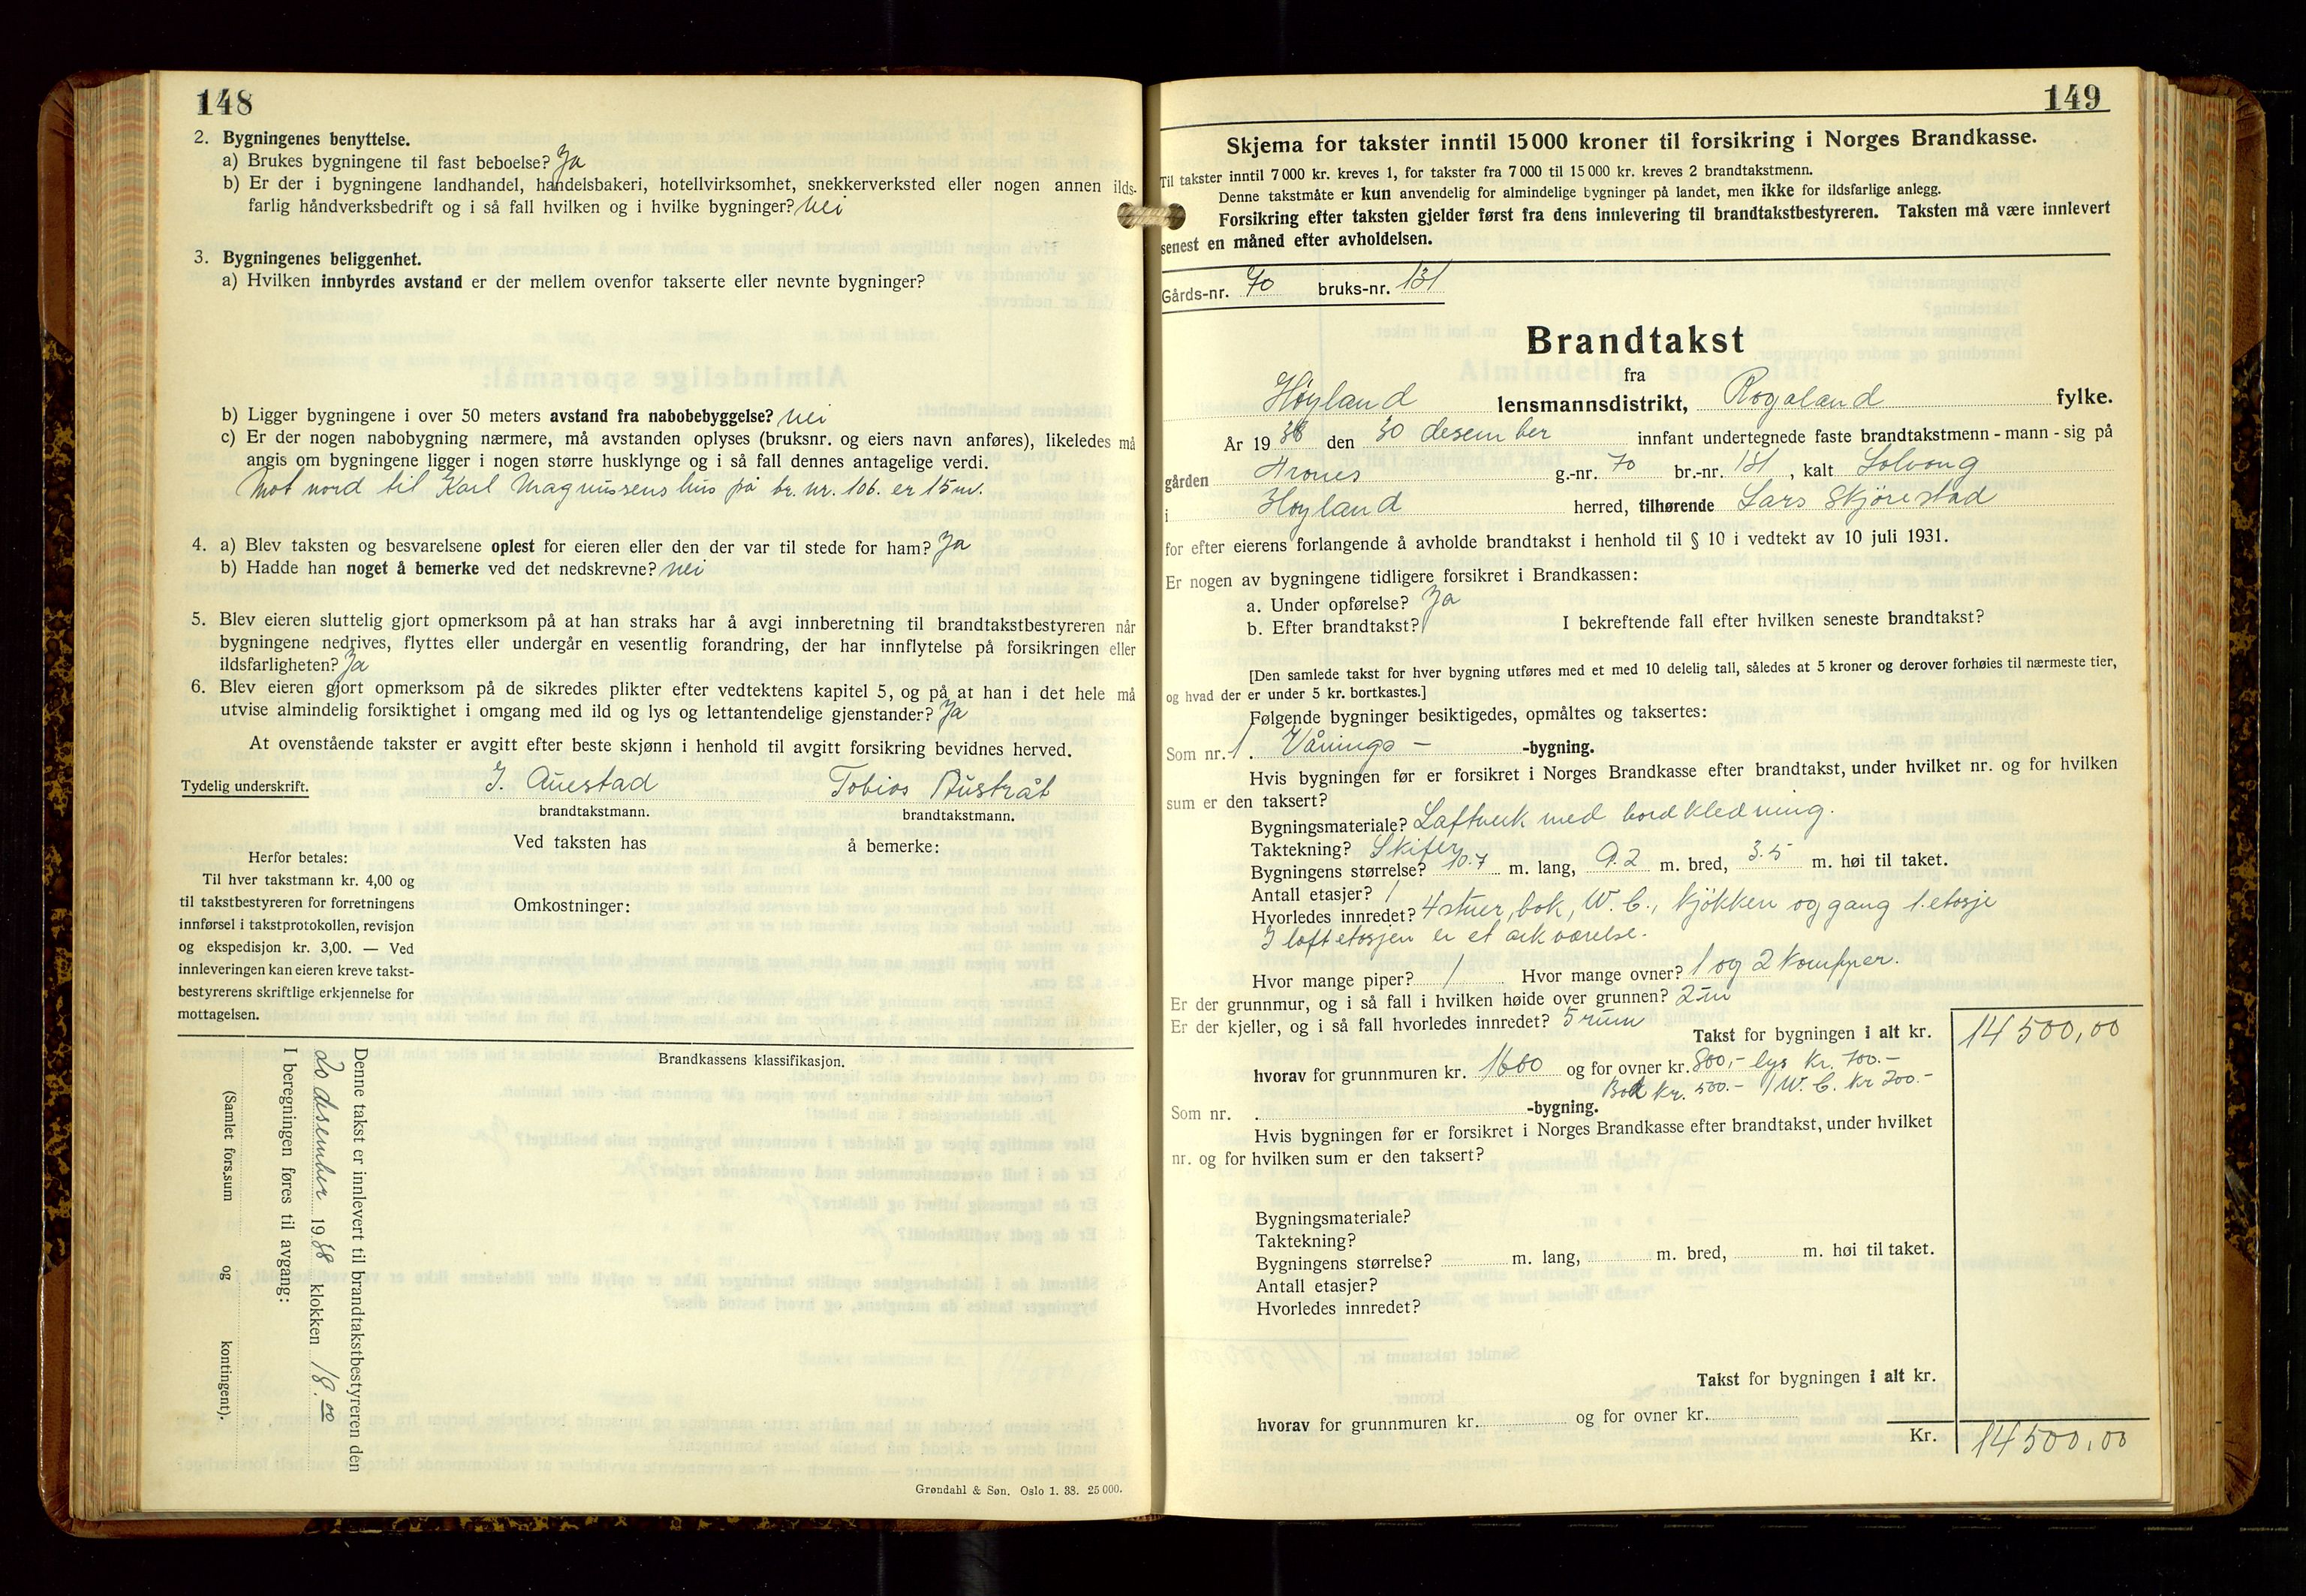 148
2. Bygningenes benyttelse.
a) Brukes bygningene til fast beboelse? Ja
b) Er der i bygningene landhandel, handelsbakeri, hotellvirksomhet, snekkerverksted eller nogen annen ilds-
farlig håndverksbedrift og i så fall hvilken og i hvilke bygninger? Nei
3. Bygningenes beliggenhet.
a) Hvilken innbyrdes avstand er der mellem ovenfor takserte eller nevnte bygninger?
b) Ligger bygningene i over 50 meters avstand fra nabobebyggelse? Nei
c) Er der nogen nabobygning nærmere, må avstanden oplyses (bruksnr. og eiers navn anføres), likeledes må
angis om bygningene ligger i nogen større husklynge og i så fall dennes antagelige verdi.
Mot nord til Karl Magnussens hus på br. nr. 106. er 15 m.
4. a) Blev taksten og besvarelsene oplest for eieren eller den der var til stede for ham? Ja
b) Hadde han noget å bemerke ved det nedskrevne? Nei
5. Blev eieren sluttelig gjort opmerksom på at han straks har å avgi innberetning til brandtakstbestyreren når
bygningene nedrives, flyttes eller undergår en vesentlig forandring, der har innflytelse på forsikringen eller
ildsfarligheten? Ja
6. Blev eieren gjort opmerksom på de sikredes plikter efter vedtektens kapitel 5, og på at han i det hele må
utvise almindelig forsiktighet i omgang med ild og lys og lettantendelige gjenstander? Ja
At ovenstående takster er avgitt efter beste skjønn i henhold til avgitt forsikring bevidnes herved.
Tydelig underskrift. J. Auestad Tobias Austråt
brandtakstmann. brandtakstmann.
Ved taksten has å bemerke:
Herfor betales:
Til hver takstmann kr. 4,00 og
til takstbestyreren for forretningens
innførsel i takstprotokollen, revisjon
og ekspedisjon kr. 3,00. — Ved
innleveringen kan eieren kreve takst-
bestyrerens skriftlige erkjennelse for
mottagelsen.
Omkostninger:
Brandkassens klassifikasjon.
Denne takst er innlevert til brandtakstbestyreren den
20 desember 1938 klokken 18.00
I beregningen føres til avgang:
(Samlet fors.sum og kontingent).
Grøndahl & Søn. Oslo 1. 38. 25 000.
149
Skjema for takster inntil 15 000 kroner til forsikring i Norges Brandkasse.
Til takster inntil 7 000 kr. kreves 1, for takster fra 7 000 til 15 000 kr. kreves 2 brandtakstmenn.
Denne takstmåte er kun anvendelig for almindelige bygninger på landet, men ikke for ildsfarlige anlegg.
Forsikring efter taksten gjelder først fra dens innlevering til brandtakstbestyreren. Taksten må være innlevert
senest en måned efter avholdelsen.
Gårds-nr. 70 bruks-nr. 131
Brandtakst
fra
Høyland lensmannsdistrikt, Rogaland fylke.
År 1938 den 30 desember innfant undertegnede faste brandtakstmenn - mann - sig på
gården g.-nr. 70 br.-nr. 131, kalt Solvang
i Høyland herred, tilhørende Lars Skjørestad
for efter eierens forlangende å avholde brandtakst i henhold til § 10 i vedtekt av 10 juli 1931.
Er nogen av bygningene tidligere forsikret i Brandkassen:
a. Under opførelse? Ja
b. Efter brandtakst? I bekreftende fall efter hvilken seneste brandtakst?
[Den samlede takst for hver bygning utføres med et med 10 delelig tall, således at 5 kroner og derover forhøies til nærmeste tier,
og hvad der er under 5 kr. bortkastes.]
Følgende bygninger besiktigedes, opmåltes og taksertes:
Som nr. 1. Vånings- -bygning.
Hvis bygningen før er forsikret i Norges Brandkasse efter brandtakst, under hvilket nr. og for hvilken
sum er den taksert?
Bygningsmateriale? Laftverk med bordkledning.
Taktekning? Skifer
Bygningens størrelse? 10.7 m. lang, 9.2 m. bred, 3.5 m. høi til taket.
Antall etasjer? 1
Hvorledes innredet? 4 stuer, bad, W.C., kjøkken og gang 1. etasje
I loftetasjen er et arkværelse.
Hvor mange piper? 1 Hvor mange ovner? 1 og 2 komfyrer.
Er der grunnmur, og i så fall i hvilken høide over grunnen? 2 m
Er der kjeller, og i så fall hvorledes innredet? 5 rum
Takst for bygningen i alt kr. 14 500,00
hvorav for grunnmuren kr. 1600 og for ovner kr. 800,- lys kr. 700.-
Bad kr. 500.- 1 W.C. kr 200.-
Som nr. . -bygning.
Hvis bygningen før er forsikret i Norges Brandkasse efter brandtakst, under hvilket
nr. og for hvilken sum er den taksert?
Bygningsmateriale?
Taktekning?
Bygningens størrelse? m. lang, m. bred, m. høi til taket.
Antall etasjer?
Hvorledes innredet?
Takst for bygningen i alt kr.
hvorav for grunnmuren kr. og for ovner kr.
Kr. 14 500,00